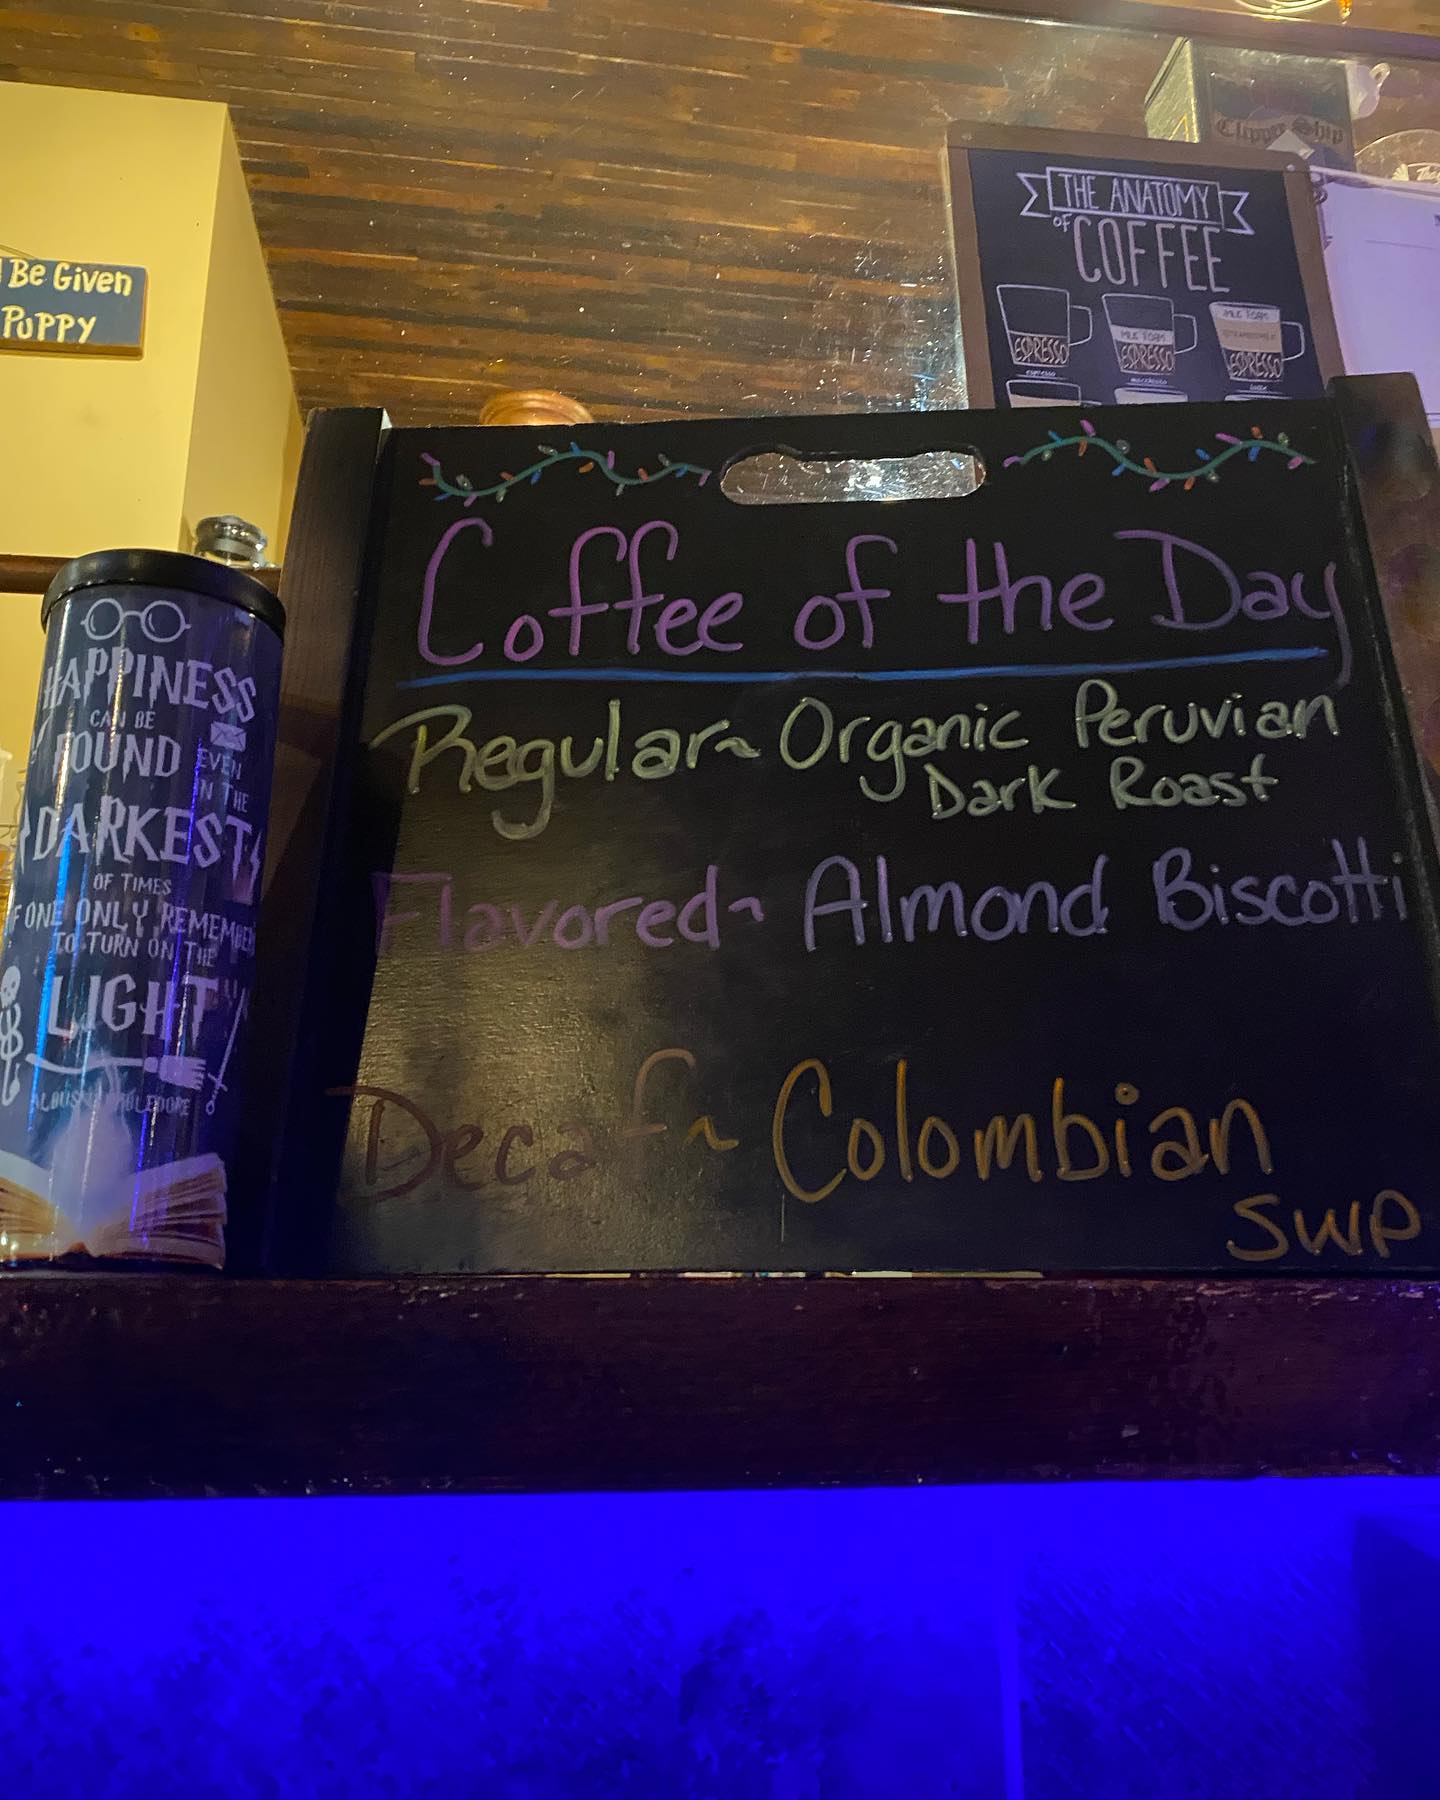 Be Given
PUPPY
Clipper Ship
THE ANATOMY
OF
COFFEE
ESPRESSO
MILK FOAM
ESPRESSO
MILK FOAM
ESPRESSO
Coffee of the Day
Regular~ Organic Peruvian
Dark Roast
Flavored~ Almond Biscotti
Decaf~ Colombian
SWP
HAPPINESS
CAN BE
FOUND EVEN
IN THE
DARKEST
OF TIMES
ONE ONLY REMEMBER
TO TURN ON THE
LIGHT
ALBUS DUMBLEDORE